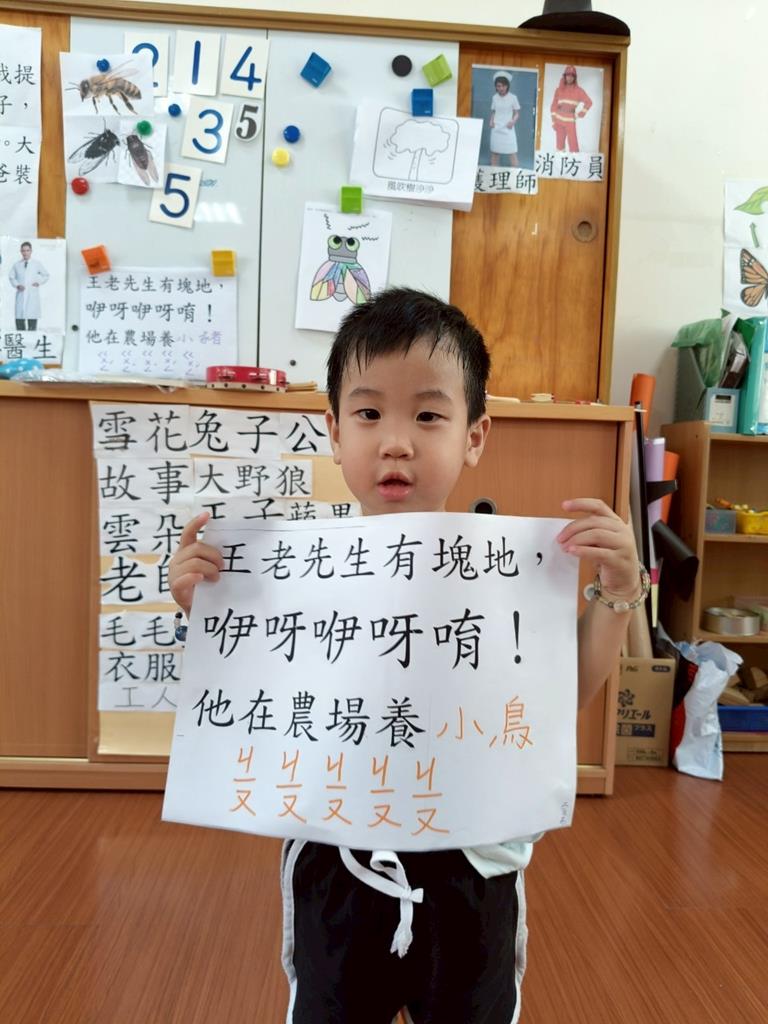 提
子，
。大
爸裝
2 1 4
3 5
5
風吹樹沙沙
護理師
消防員
醫生
王老先生有塊地，
咿呀咿呀唷！
他在農場養小豬
雪花兔子公
故事大野狼
雲朵王子蘋果
老
毛毛
衣服
工人
王老先生有塊地，
咿呀咿呀唷！
他在農場養小鳥
ㄐㄧㄡ ㄐㄧㄡ ㄐㄧㄡ ㄐㄧㄡ ㄐㄧㄡ
P&G